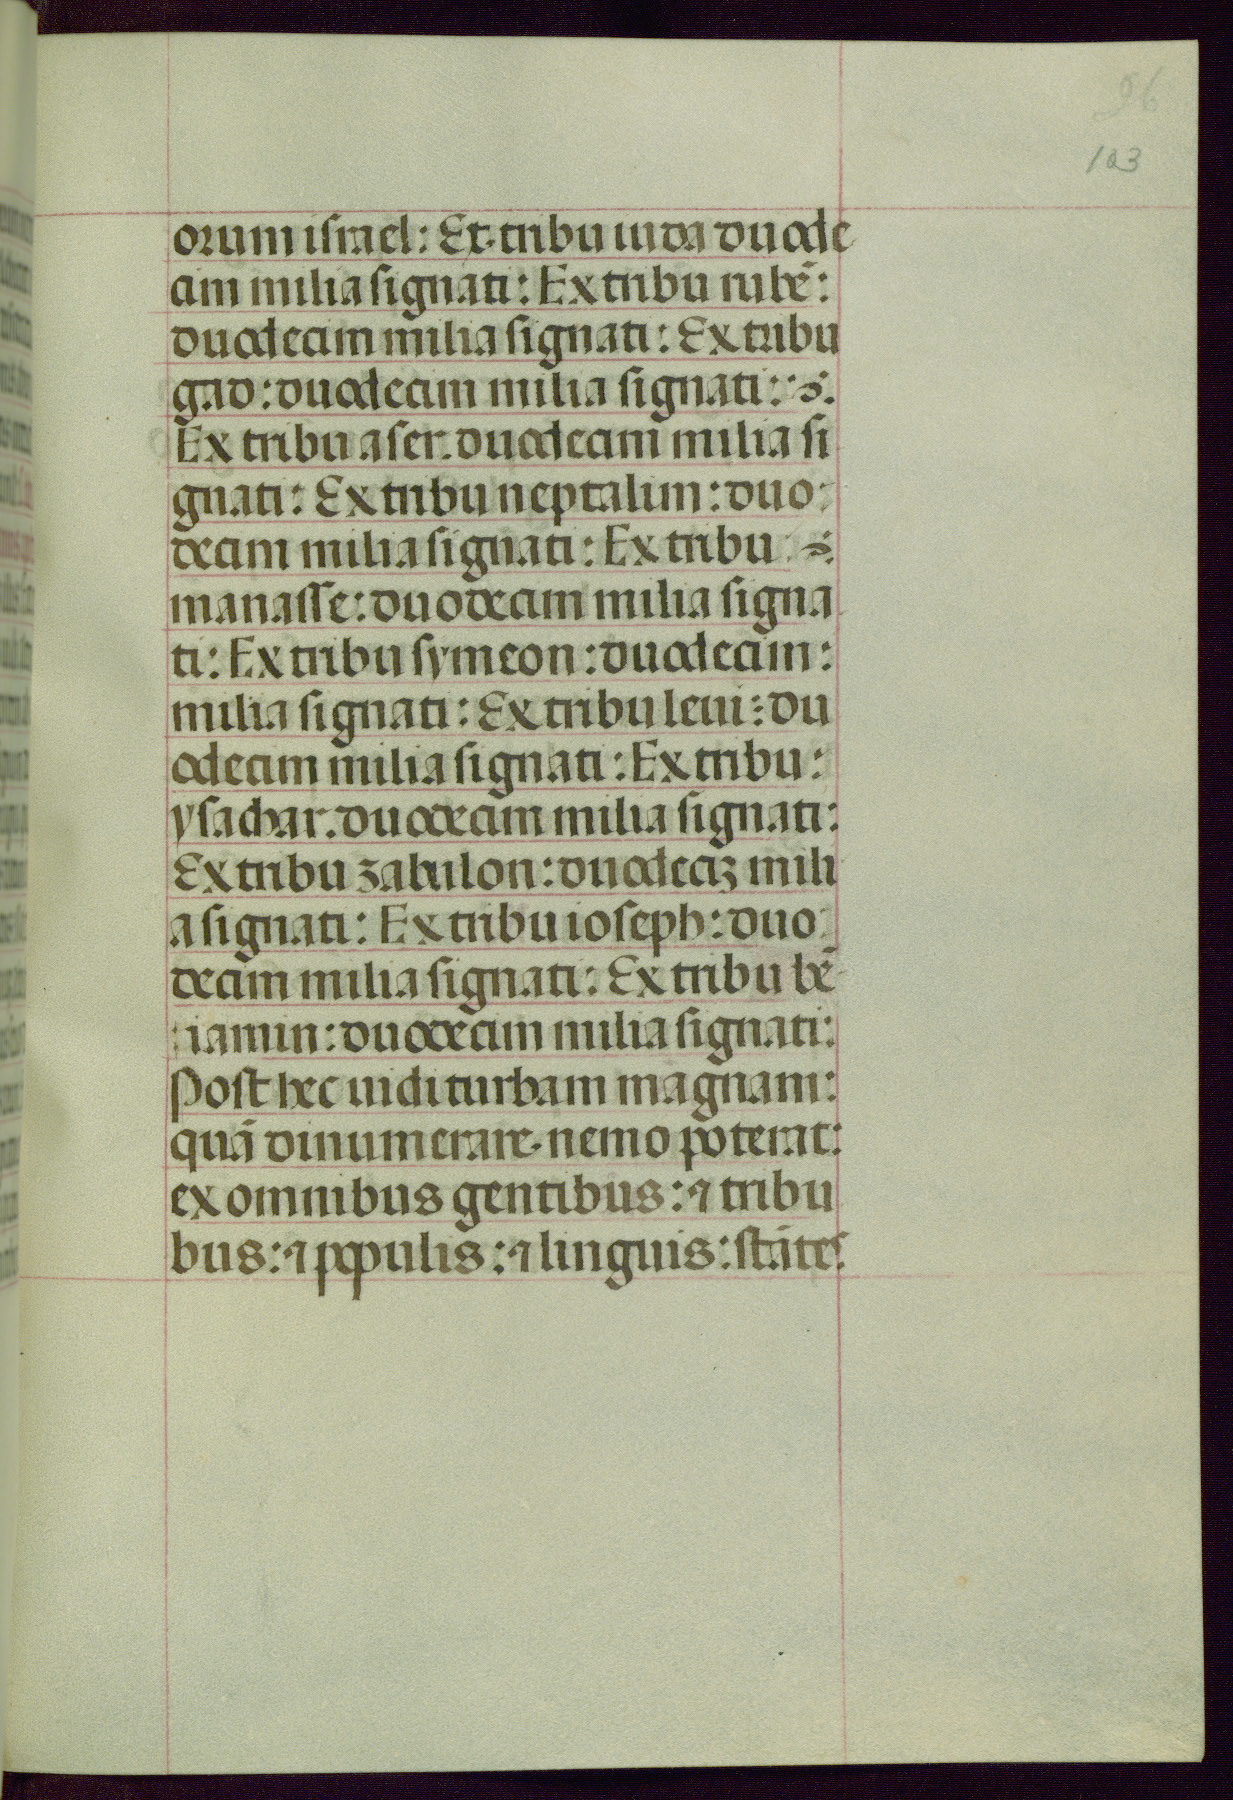 96
103
orum israel: Ex tribu iuda duode
cim milia signati: Ex tribu rubē:
duodecim milia signati: Ex tribu
gad: duodecim milia signati:
Ex tribu aser. duodecim milia si
gnati: Ex tribu neptalim: duo
decim milia signati: Ex tribu
manasse: duodecim milia signa
ti: Ex tribu symeon: duodecim:
milia signati: Ex tribu leui: du
odecim milia signati: Ex tribu:
ysachar. duodecim milia signati:
Ex tribu zabulon: duodeciʒ mili
a signati: Ex tribu ioseph: duo
decim milia signati: Ex tribu bē
iamin: duodecim milia signati:
Post hec uidi turbam magnam:
quā dinumerare nemo poterat:
ex omnibus gentibus: ⁊ tribu
bus: ⁊ populis: ⁊ linguis: stātes